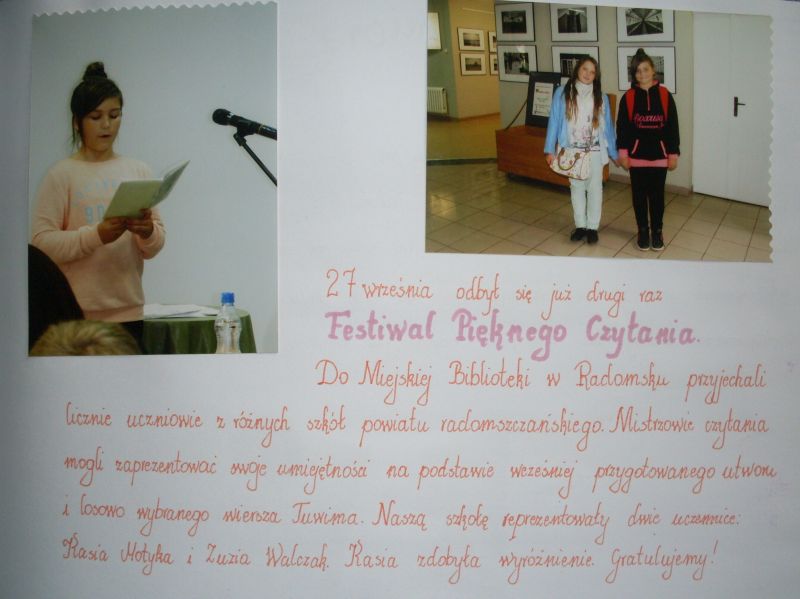 27 września odbył się już drugi raz
Festiwal Pięknego Czytania.
Do Miejskiej Biblioteki w Radomsku przyjechali
licznie uczniowie z różnych szkół powiatu radomszczańskiego. Mistrzowie czytania
mogli zaprezentować swoje umiejętności na podstawie wcześniej przygotowanego utworu
i losowo wybranego wiersza Tuwima. Naszą szkołę reprezentowały dwie uczennice:
Kasia Motyka i Zuzia Walczak. Kasia zdobyła wyróżnienie. Gratulujemy!